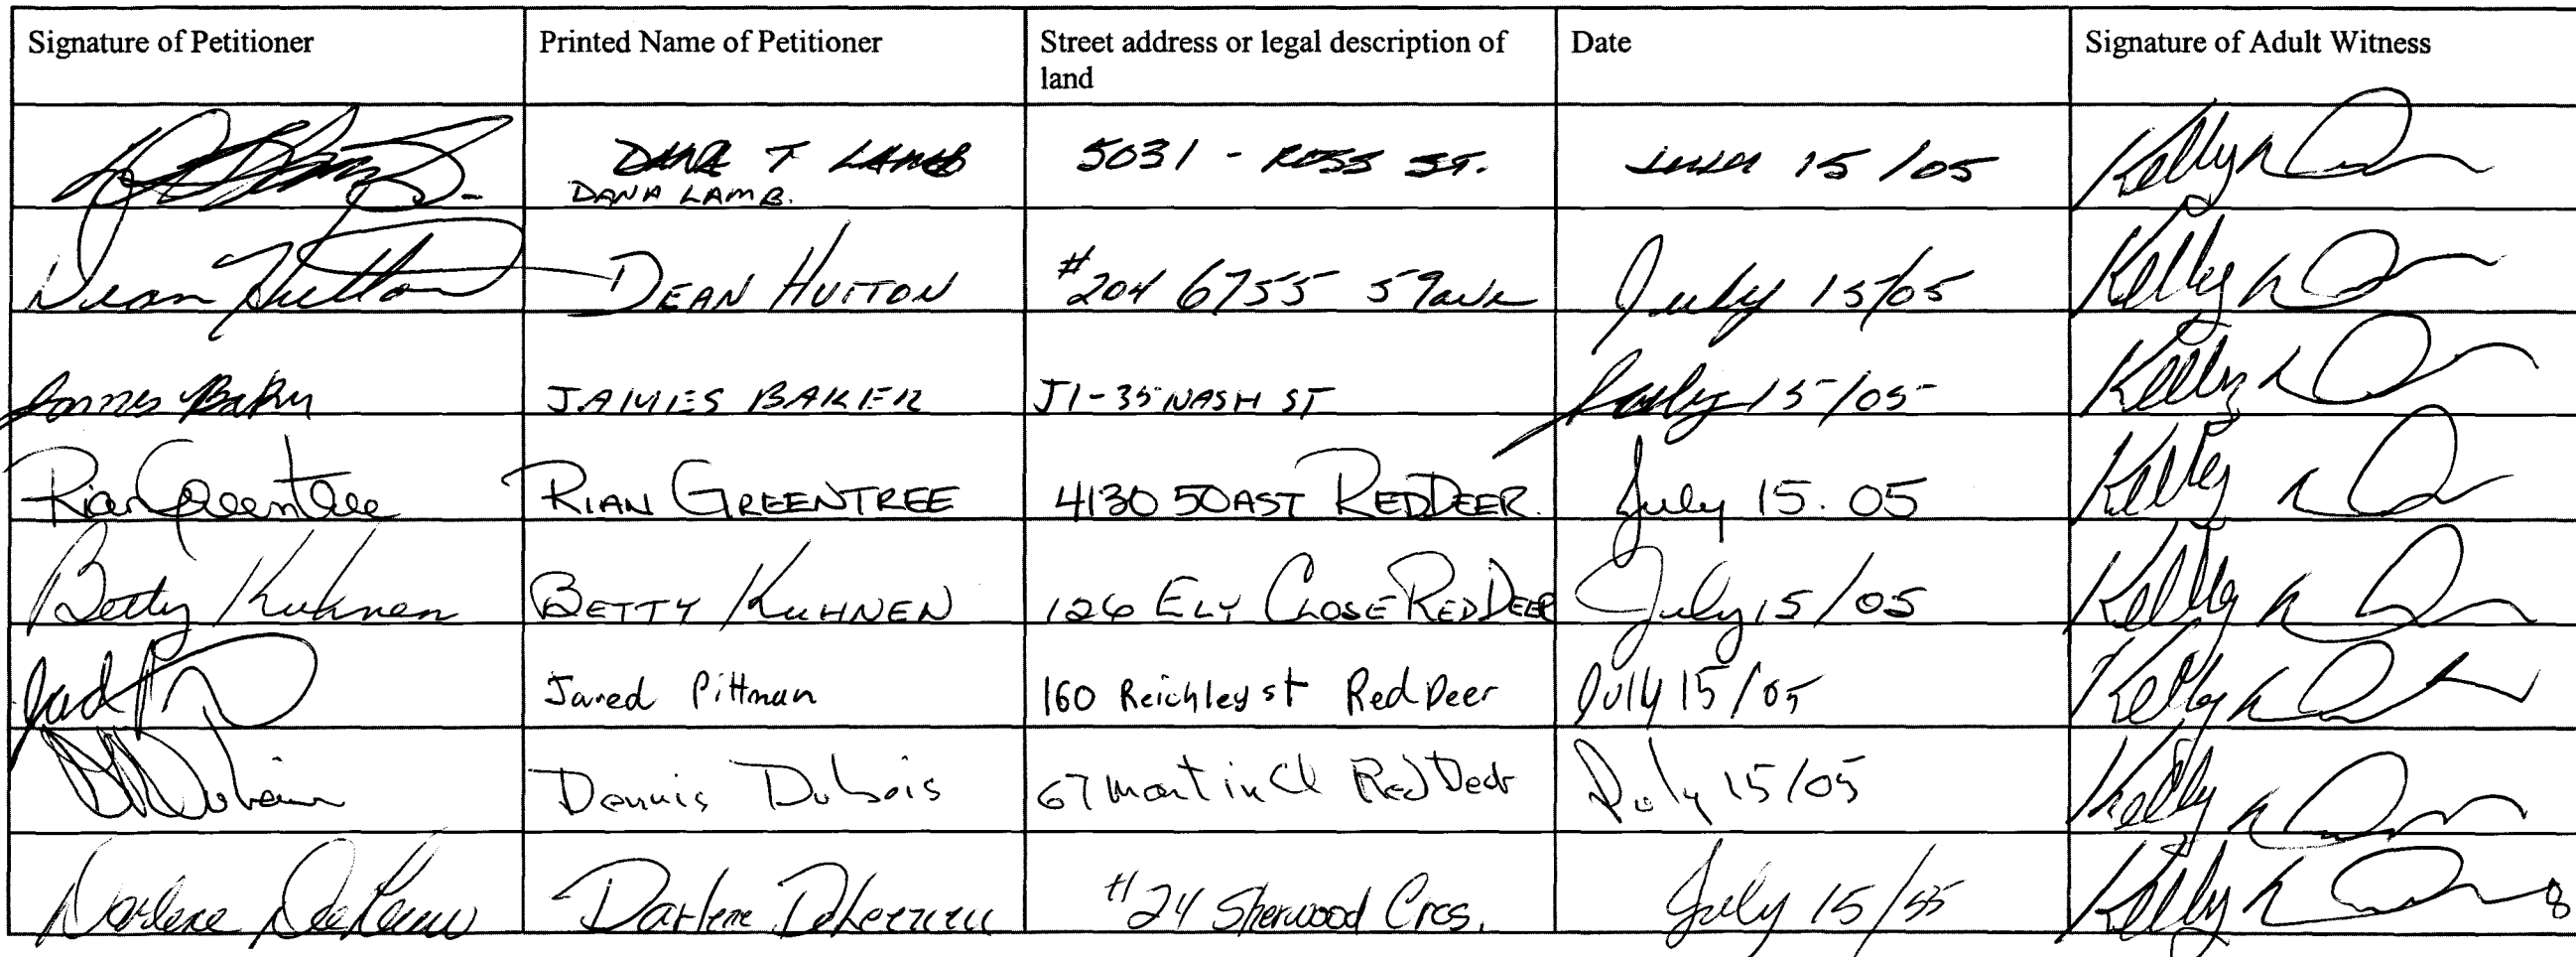 Signature of Petitioner Printed Name of Petitioner Street address or legal description of land Date Signature of Adult Witness
DANA T LAMB 5031 - ROSS ST. 15/05 Kelly
DANA LAMB.
Dean Hutton DEAN HUTTON #204 6755 59ave July 15/05 Kelly
James Baker JAMES BAKER J1-35 NASH ST July 15/05 Kelly
Rian Greentree RIAN GREENTREE 4130 50AST REDDEER. July 15.05 Kelly
Betty Kuhnen BETTY KUHNEN 126 ELY CLOSE RED DEER July 15/05 Kelly
Jared Pittman 160 Reichley st Red Deer July 15/05 Kelly
Dennis Dubois 67 Martin Cl Red Deer July 15/05 Kelly
Darlene Darlene #24 Sherwood Cres. July 15/ Kelly
8